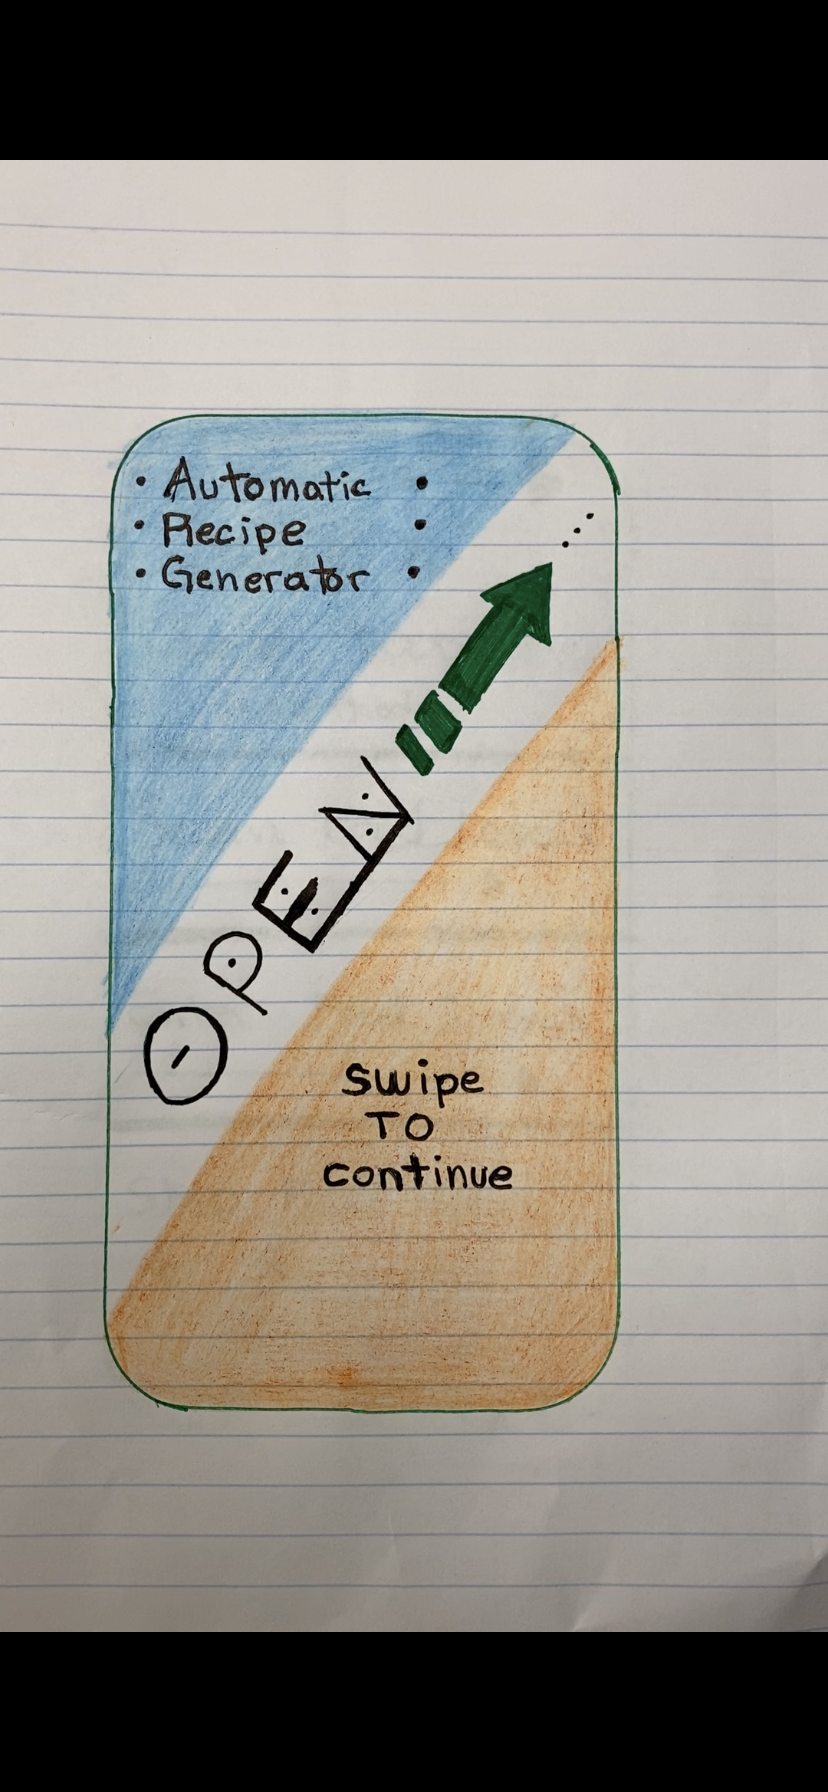 • Automatic •
• Recipe •
• Generator •
OPEN
Swipe
TO
continue